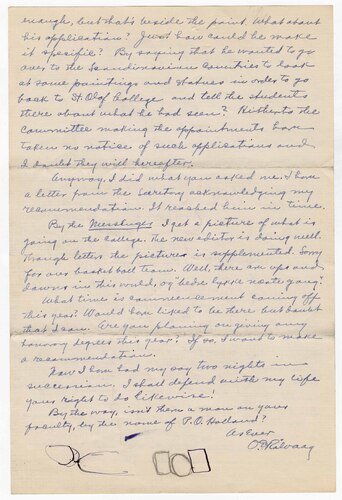 enough, but that's beside the point. What about
his application? Just how could he make
it specific? By saying that he wanted to go
over to the Scandinavian Countries to look
at some paintings and statues in order to go
back to St. Olaf College and tell the students
there about what he had seen? Hitherto the
Committee making the appointments have
taken no notice of such applications and
I doubt they will hereafter.
Anyway, I did what you asked me. I have
a letter from the Secretary acknowledging my
recommendation. It reached him in time.
By the Messenger I get a picture of what is
going on the College. The new editor is doing well.
through letters the picture is supplemented. Sorry
for our basket ball team. Well, there are ups and
downs in this world, or "bedre lykke næste gang".
What time is commencement coming off
this year? Would have liked to be there but doubt
that I can. Are you planning on giving any
honorary degrees this year? If so, I want to make
a recommendation.
Now I have had my way two nights in
succession. I shall defend with my life
yours right to do likewise!
By the way, isn't there a man on your
faculty, by the name of P. O. Holland?
As Ever
O. E. Rölvaag